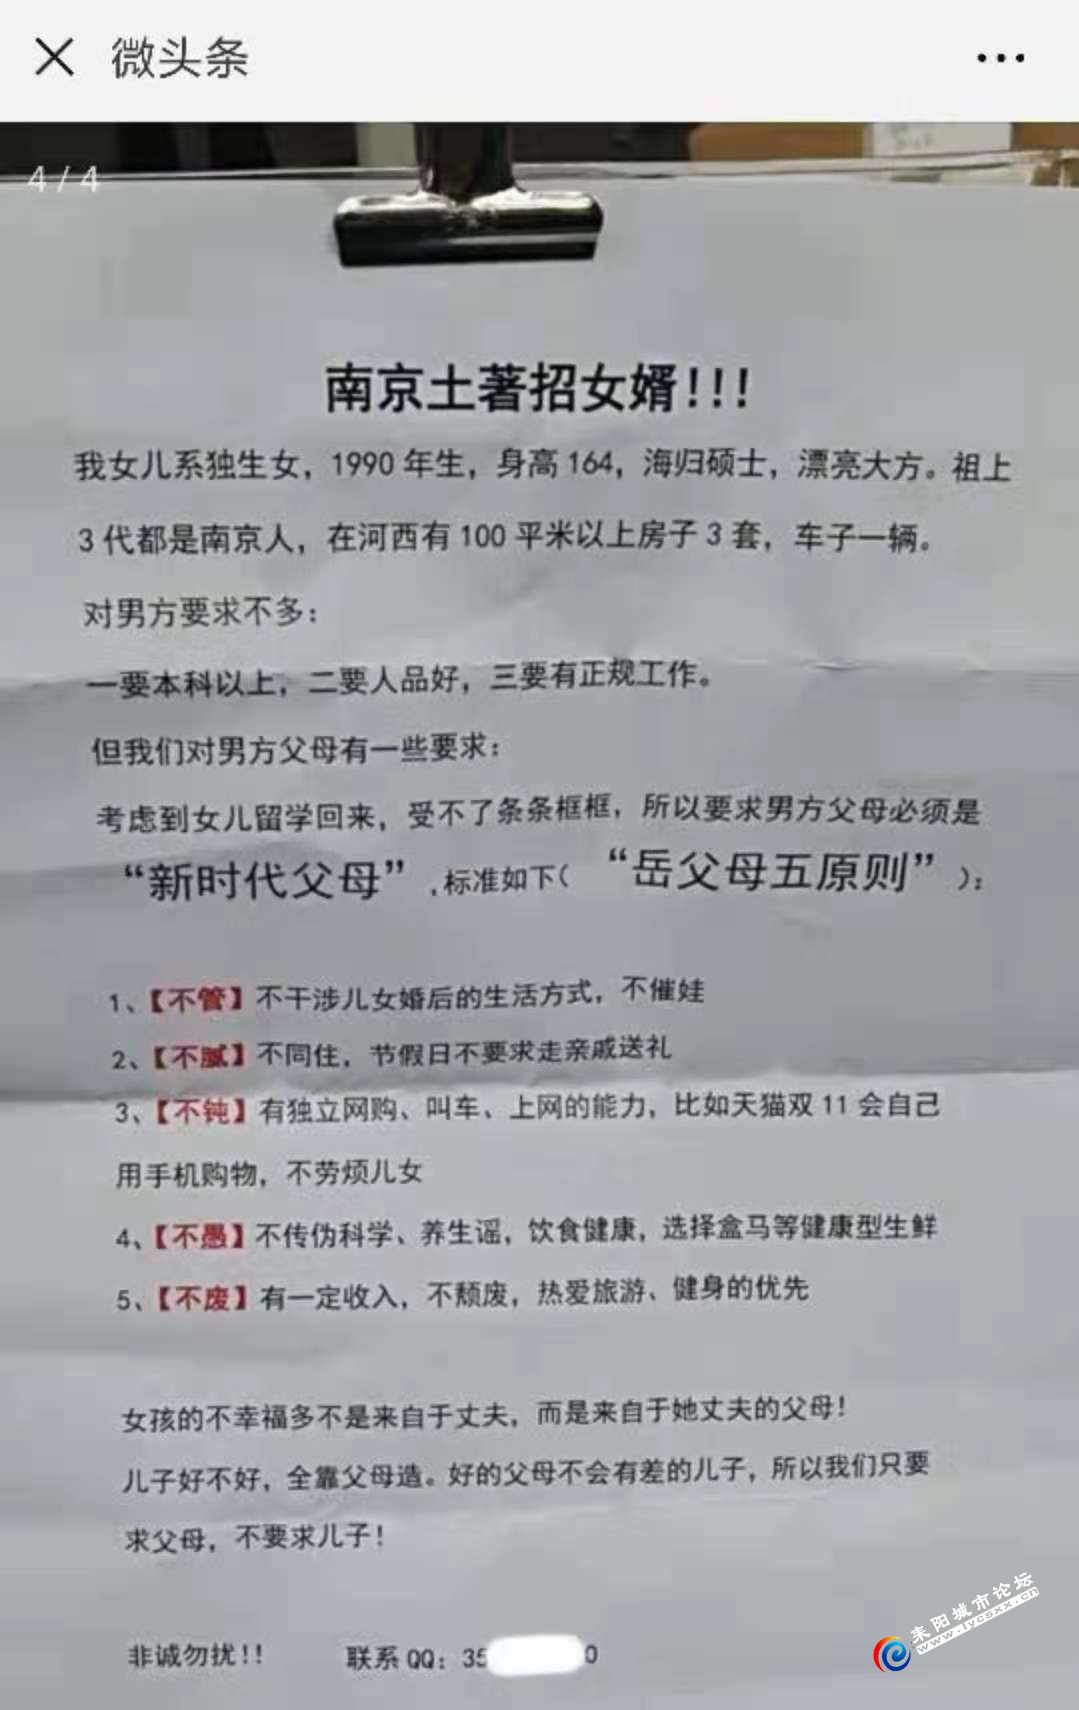 微头条
4/4
南京土著招女婿!!!
我女儿系独生女，1990年生，身高164，海归硕士，漂亮大方。祖上
3代都是南京人，在河西有100平米以上房子3套，车子一辆。
对男方要求不多：
一要本科以上，二要人品好，三要有正规工作。
但我们对男方父母有一些要求：
考虑到女儿留学回来，受不了条条框框，所以要求男方父母必须是
“新时代父母”,标准如下（“岳父母五原则”）：
1、【不管】不干涉儿女婚后的生活方式，不催娃
2、【不腻】不同住，节假日不要求走亲戚送礼
3、【不钝】有独立网购、叫车、上网的能力，比如天猫双11会自己
用手机购物，不劳烦儿女
4、【不愚】不传伪科学、养生谣，饮食健康，选择盒马等健康型生鲜
5、【不废】有一定收入，不颓废，热爱旅游、健身的优先
女孩的不幸福多不是来自于丈夫，而是来自于她丈夫的父母！
儿子好不好，全靠父母造。好的父母不会有差的儿子，所以我们只要
求父母，不要求儿子！
非诚勿扰!! 联系QQ：35 0
耒阳城市论坛
www.lycsxx.cn